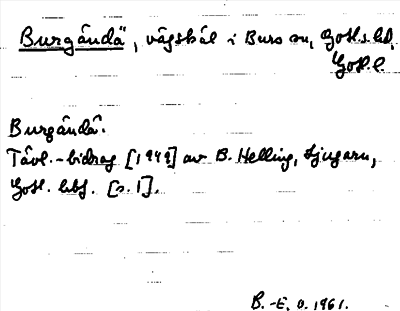 Burgändä", vägskäl i Burs sn, Gotl.s hd,
Gotl. l.
Burgändä.
Tävl.-bidrag [1949] av B. Helling, Ljugarn,
Gotl. hbf. [s. 1].
B.-E. O. 1961.